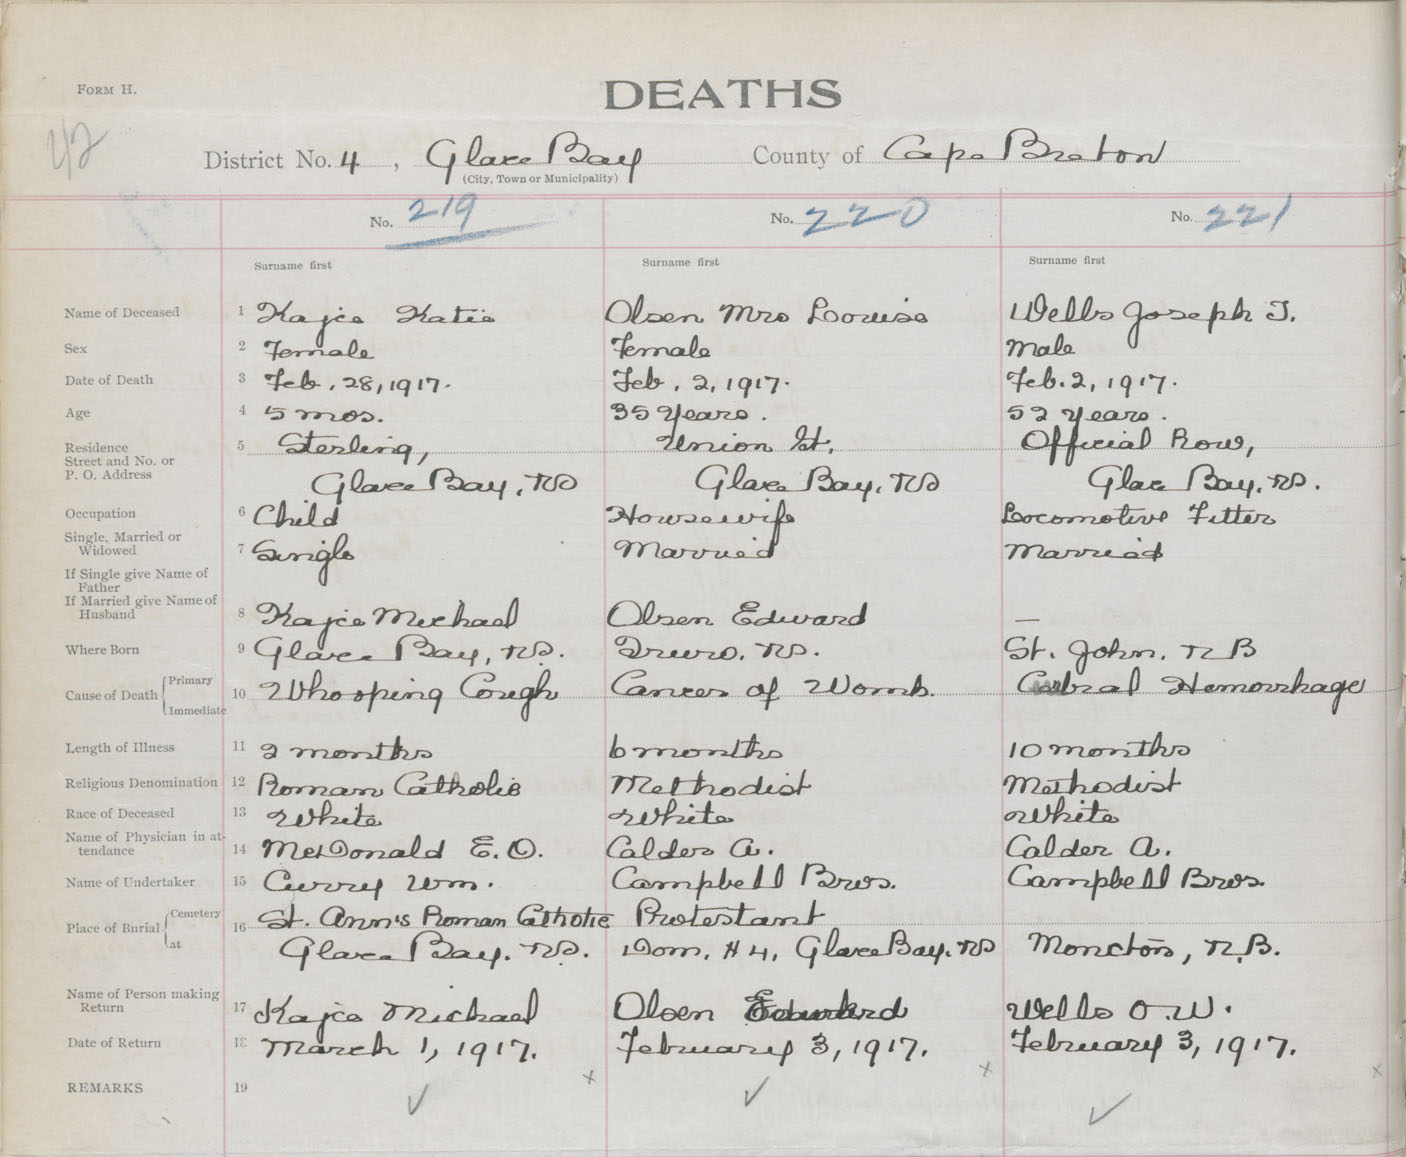 FORM H.
DEATHS
42
District No. 4, Glace Bay County of Cape Breton
(City, Town or Municipality)
No. 219 No. 220 No. 221
Surname first Surname first Surname first
Name of Deceased 1 Kajce Katie Olsen Mrs Louise Wells Joseph T.
Sex 2 Female Female Male
Date of Death 3 Feb. 28, 1917. Feb. 2, 1917. Feb. 2, 1917.
Age 4 5 mos. 35 years. 52 years.
Residence 5 Sterling, Union St. Official Row,
Street and No. or
P. O. Address Glace Bay, NS Glace Bay, NS Glace Bay, NS.
Occupation 6 Child Housewife Locomotive Fitter
Single, Married or
Widowed 7 Single Married Married
If Single give Name of
Father
If Married give Name of
Husband 8 Kajce Michael Olsen Edward —
Where Born 9 Glace Bay, NS. Truro. NS. St. John. N B
Cause of Death { Primary
Immediate 10 Whooping Cough Cancer of Womb. Cerbral Hemorrhage
Length of Illness 11 2 months 6 months 10 months
Religious Denomination 12 Roman Catholic Methodist Methodist
Race of Deceased 13 White White White
Name of Physician in at-
tendance 14 McDonald E. O. Calder A. Calder A.
Name of Undertaker 15 Curry Wm. Campbell Bros. Campbell Bros.
Place of Burial { Cemetery 16 St. Ann's Roman Catholic Protestant
at Glace Bay. NS. Dom. # 4, Glace Bay. NS Moncton, N.B.
Name of Person making
Return 17 Kajce Michael Olsen Edward Wells O. W.
Date of Return 18 March 1, 1917. February 3, 1917. February 3, 1917.
REMARKS 19